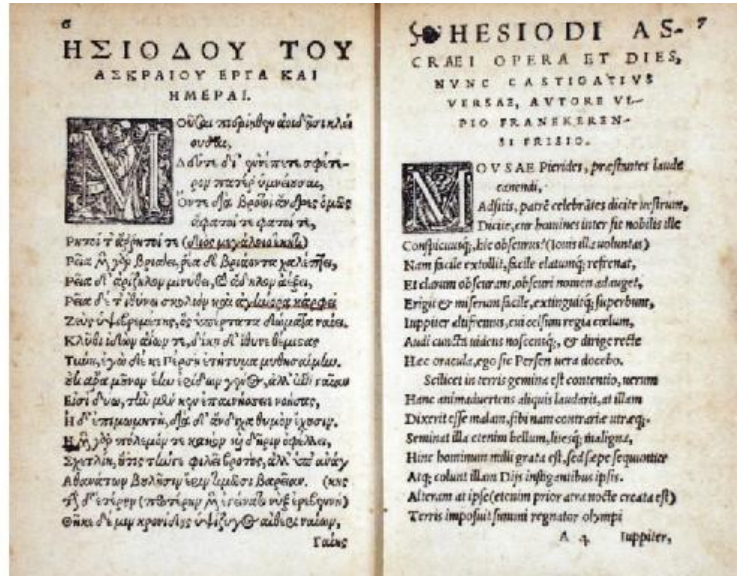 6
ΗΣΙΟΔΟΥ ΤΟΥ
ΑΣΚΡΑΙΟΥ ΕΡΓΑ ΚΑΙ
ΗΜΕΡΑΙ.
Μοῦσαι πιερίηθεν ἀοιδῇσι κλεί
ουσαι,
Δεῦτε δί' ἐννέπετε σφέτε-
ρον πατέρ' ὑμνείουσαι,
Ὅντε διὰ βροτοὶ ἄνδρες ὁμῶς
ἄφατοί τε φατοί τε,
Ρητοί τ' ἄρρητοί τε (διὸς μεγάλοιο ἕκητι)
Ρεῖα μὲν γὰρ βριάει, ῥέα δὲ βριάοντα χαλέπτει,
Ρεῖα δ' ἀρίζηλον μινύθει, καὶ ἄδηλον ἀέξει,
Ρεῖα δέ τ' ἰθύνει σκολιὸν καὶ ἀγήνορα κάρφει
Ζεὺς ὑψιβρεμέτης, ὃς ὑπέρτατα δώματα ναίει.
Κλῦθι ἰδὼν ἀΐων τε, δίκῃ δ' ἴθυνε θέμιστας
Τύνη, ἐγὼ δέ κε Πέρσῃ ἐτήτυμα μυθησαίμην.
Οὐκ ἄρα μοῦνον ἔην ἐρίδων γένος, ἀλλ' ἐπὶ γαῖαν
Εἰσὶ δύω, τὴν μέν κεν ἐπαινήσειε νοήσας,
Ἡ δ' ἐπιμωμητὴ, διὰ δ' ἄνδιχα θυμὸν ἔχουσιν.
Ἡ μὲν γὰρ πόλεμόν τε κακὸν καὶ δῆριν ὀφέλλει,
Σχετλίη, οὔτις τήνγε φιλεῖ βροτὸς, ἀλλ' ὑπ' ἀνάγ
Ἀθανάτων βουλῇσιν ἔριν τιμῶσι βαρεῖαν. (κης
Τὴν δ' ἑτέρην (προτέρην μὲν ἐγείνατο νὺξ ἐρεβεννὴ)
Θῆκε δέ μιν κρονίδης ὑψίζυγος αἰθέρι ναίων,
Γαίης
7
HESIODI AS-
CRAEI OPERA ET DIES,
NVNC CASTIGATIVS
VERSAE, AVTORE VL-
PIO FRANEKEREN-
SI FRISIO.
MOVSAE Pierides, præstantes laude
canendi,
Adsitis, patrē celebrātes dicite uestrum,
Dicite, cur homines inter sic nobilis ille
Conspicuusq;, hic obscurus? (Iouis illa uoluntas)
Nam facile extollit, facile elatumq; refrenat,
Et clarum obscurans, obscuri nomen adauget,
Erigit & miserum facile, extinguitq; superbum,
Iuppiter altifremus, cui celsum regia cœlum,
Audi cuncta uidens noscensq;, & dirige recte
Hæc oracula, ego sic Persen uera docebo.
Scilicet in terris gemina est contentio, uerum
Hanc animaduertens aliquis laudarit, at illam
Dixerit esse malam, sibi nam contrariæ utræq;.
Seminat illa etenim bellum, litesq; malignas,
Hinc hominum nulli grata est, sed sæpe sequuntur
Atq; colunt illam Dijs instigantibus ipsis.
Alteram at ipse (etenim prior atra nocte creata est)
Terris imposuit summi regnator olympi
A 4 Iuppiter,